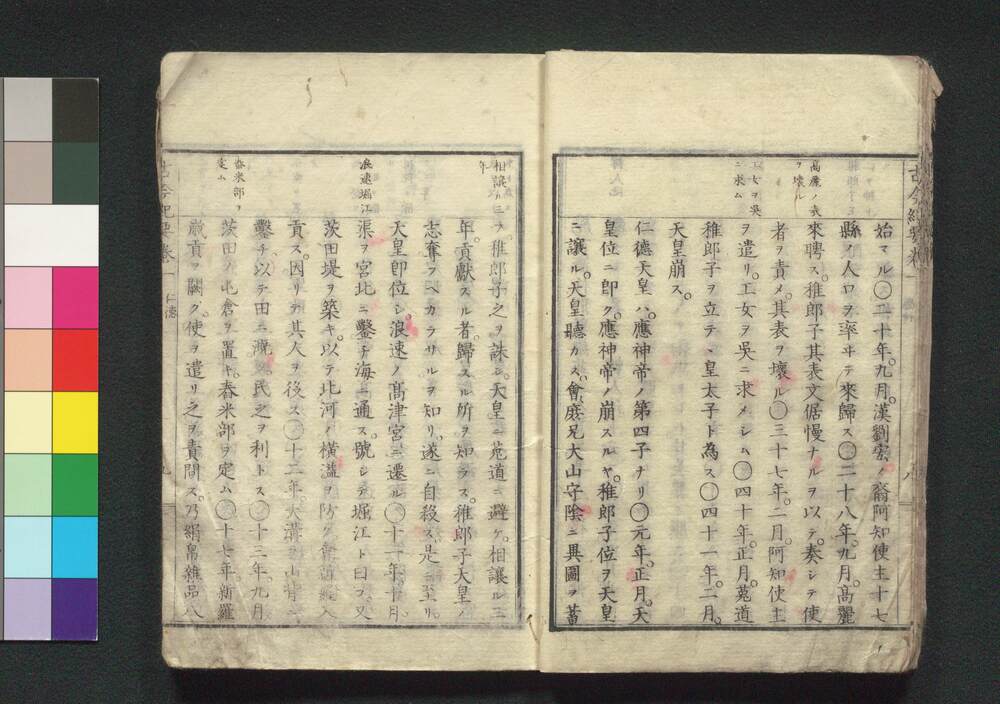 始マル〇二十年。九月。漢劉宏ノ裔阿知使主十七
縣ノ人口ヲ率ヰテ來歸ス〇二十八年。九月。高麗
來聘ス。稚郎子其表文倨慢ナルヲ以テ。奏シテ使
者ヲ責メ。其表ヲ壞ル〇三十七年。二月。阿知使主
ヲ遣リ。工女ヲ吳ニ求メシム〇四十年。正月。菟道
稚郎子ヲ立テヽ皇太子ト為ス〇四十一年。二月。
天皇崩ス。
仁德天皇ハ。應神帝ノ第四子ナリ〇元年。正月。天
皇位ニ即ク。應神帝ノ崩スルヤ。稚郎子位ヲ天皇
ニ讓ル。天皇聽カス。會庶兄大山守陰ニ異圖ヲ蓄
高麗ノ表
ヲ壞ル
工女ヲ吳
ニ求ム
フ。稚郎子之ヲ誅シ。天皇ニ菟道ニ避ケ。相讓ル三
年。貢獻スル者。歸スル所ヲ知ラス。稚郎子天皇ノ
志奪フヘカラサルヲ知リ。遂ニ自殺ス。是ニ至リ。
天皇即位シ。浪速ノ高津宮ニ遷ル〇十一年。十月。
渠ヲ宮北ニ鑿チ海ニ通ス。號シテ堀江ト曰フ。又
茨田堤ヲ築キ。以テ北河ノ橫溢ヲ防ク
貢ス。因リテ其人ヲ後ス〇十二年。大溝ヲ山背ニ
鑿チ。以テ田ニ漑ク。民之ヲ利トス〇十三年。九月
茨田ノ屯倉ヲ置キ。舂米部ヲ定ム〇十七年。新羅
歲貢ヲ闕ク。使ヲ遣リ之ヲ責問ス。乃絹帛雜品八
相讓ル三
年
浪速堀江
舂米部ヲ
定ム
古今紀要卷一
仁德
九
八